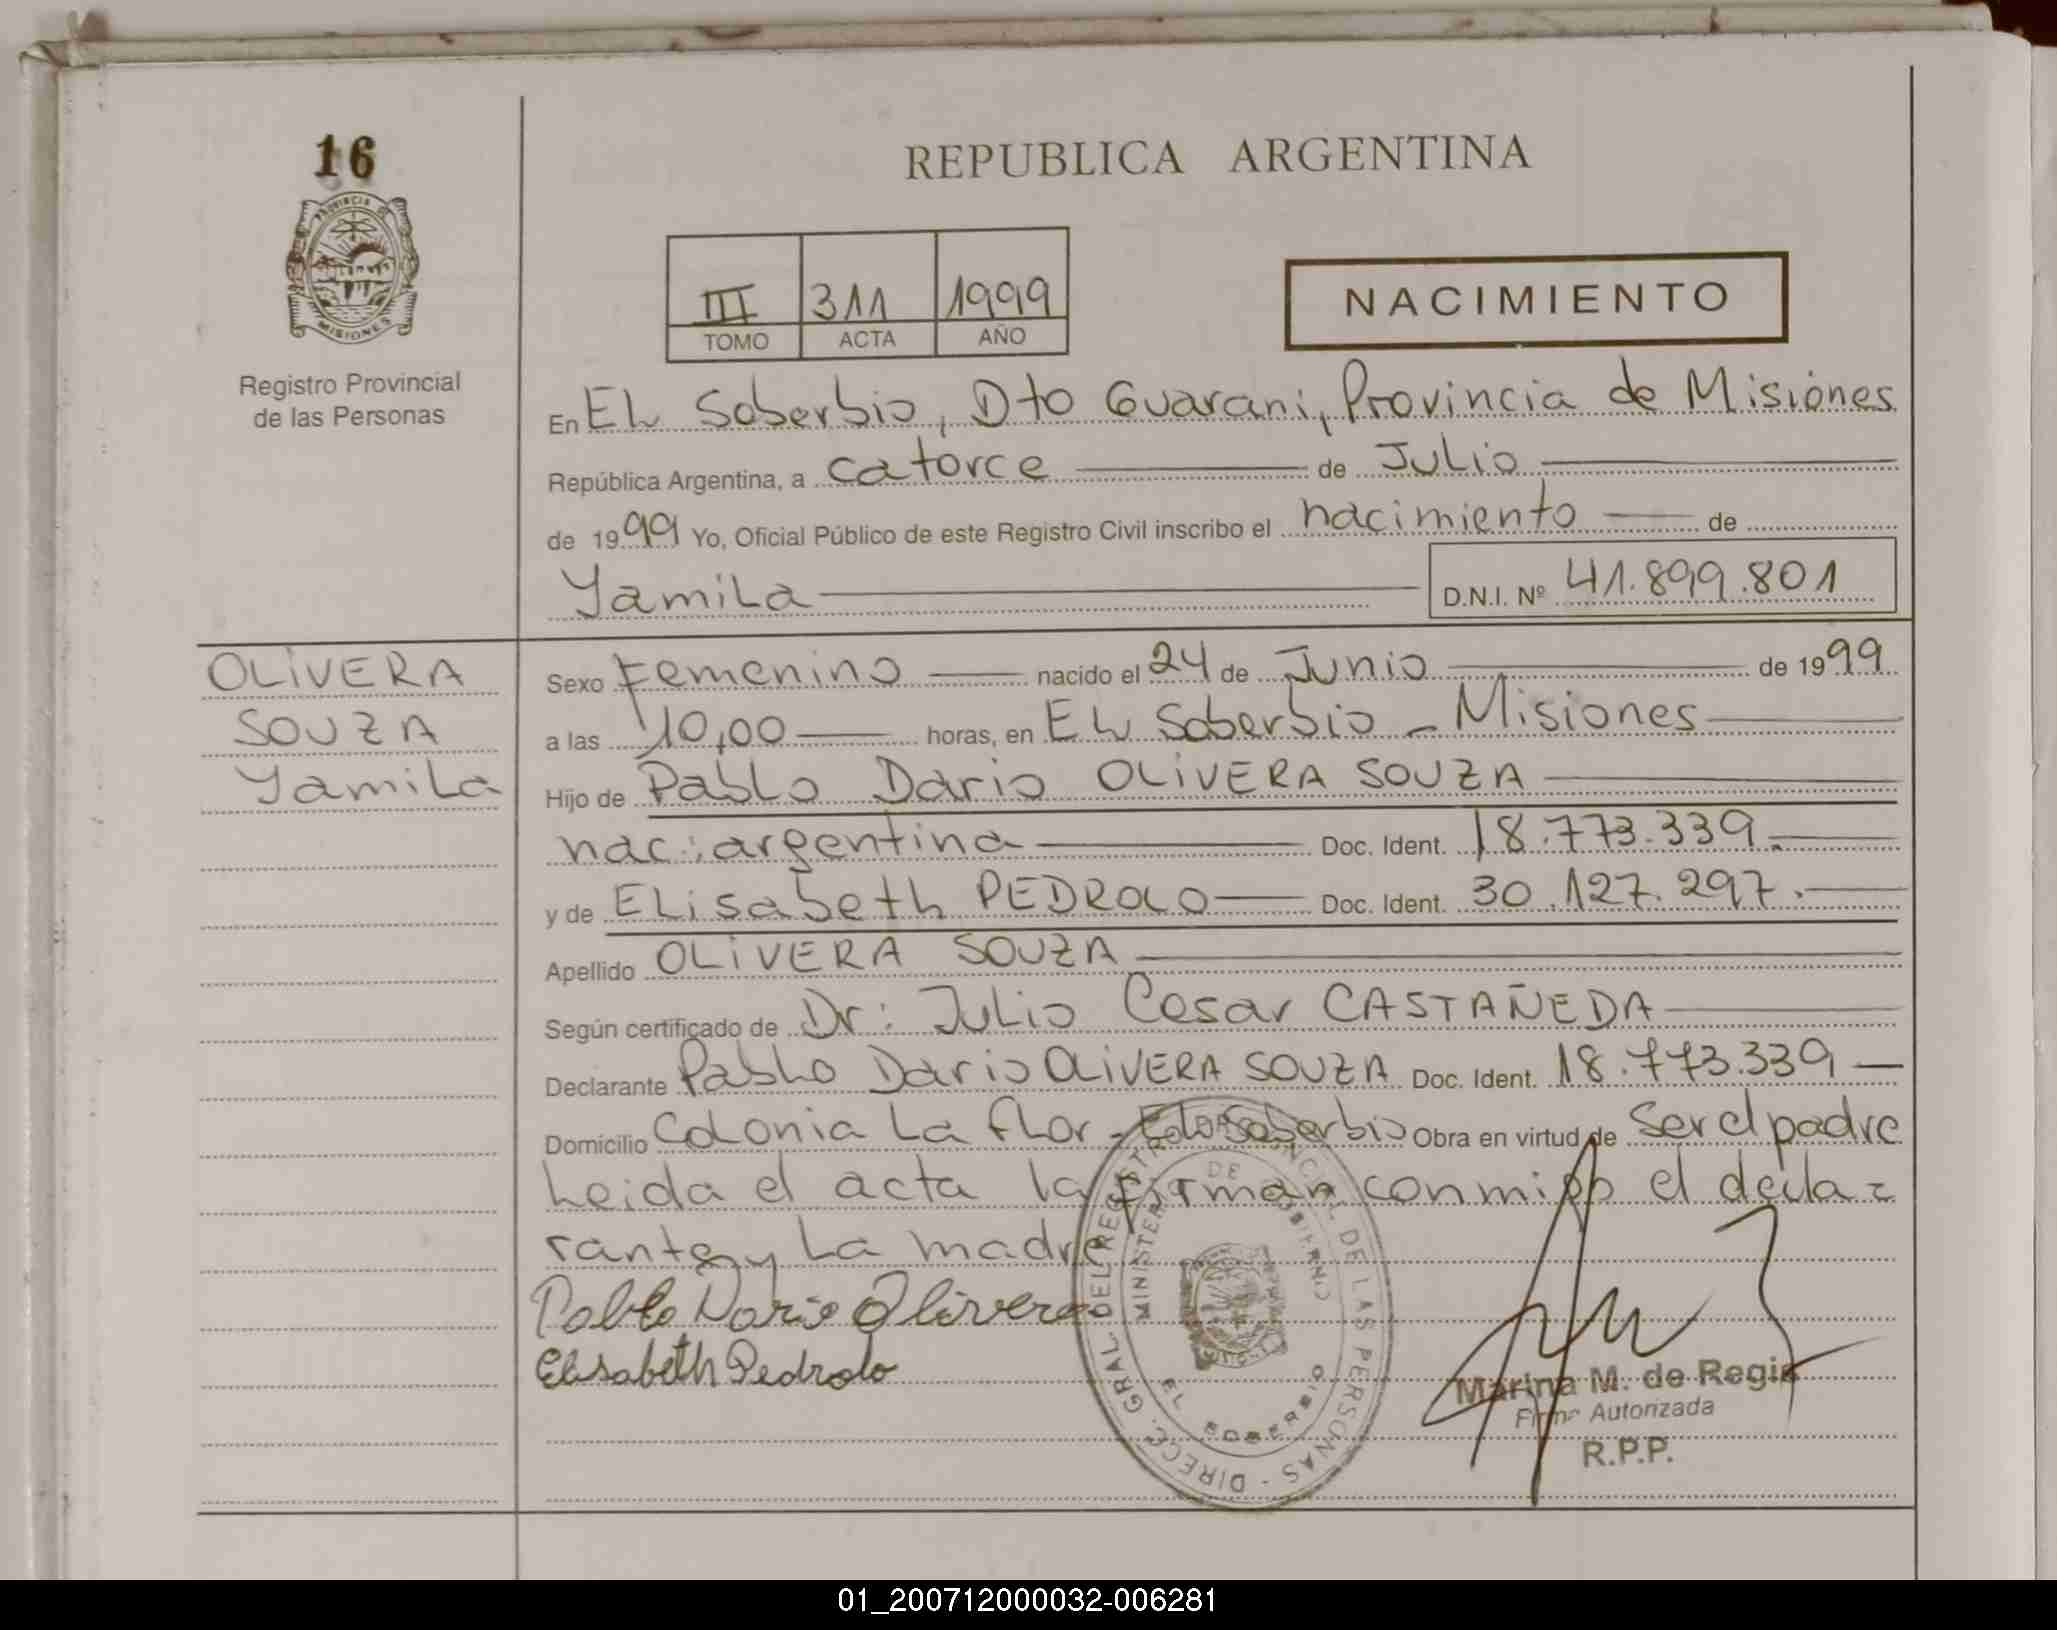 16
PROVINCIA DE
MISIONES
Registro Provincial
de las Personas
REPUBLICA ARGENTINA
III 311 1999
TOMO ACTA AÑO
NACIMIENTO
En EL Soberbio, Dto Guarani, Provincia de Misiones
República Argentina, a catorce de Julio
de 1999 Yo, Oficial Público de este Registro Civil inscribo el nacimiento de
Yamila D.N.I. Nº 41.899.801
OLIVERA
SOUZA
Yamila
Sexo Femenino nacido el 24 de Junio de 1999
a las 10,00 horas, en EL Soberbio - Misiones
Hijo de Pablo Dario OLIVERA SOUZA
nac: argentina Doc. Ident. 18.773.339.
y de ELisabeth PEDROLO Doc. Ident. 30.127.297.
Apellido OLIVERA SOUZA
Según certificado de Dr: Julio Cesar CASTAÑEDA
Declarante Pablo Dario OLIVERA SOUZA Doc. Ident. 18.773.339
Domicilio Colonia La flor - EL Soberbio Obra en virtud de ser el padre
Leida el acta la firman conmigo el decla=
rante y La madre
Pablo Dario Olivera
Elisabeth Pedrolo
DIRECC. GRAL. DEL REGISTRO PROVINCIAL DE LAS PERSONAS -
MINISTERIO DE GOBIERNO
EL SOBERBIO
Marina M. de Regis
Firma Autorizada
R.P.P.
01_200712000032-006281